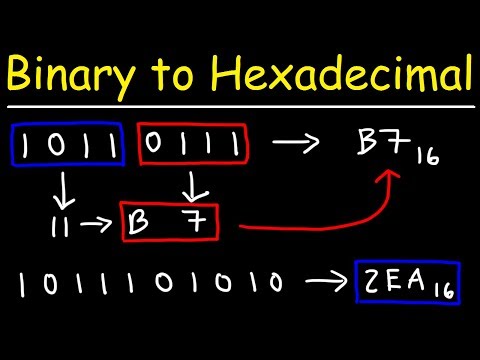 Binary to Hexadecimal
1011 0111 → B7₁₆
11 → B 7
1011101010 → 2EA₁₆